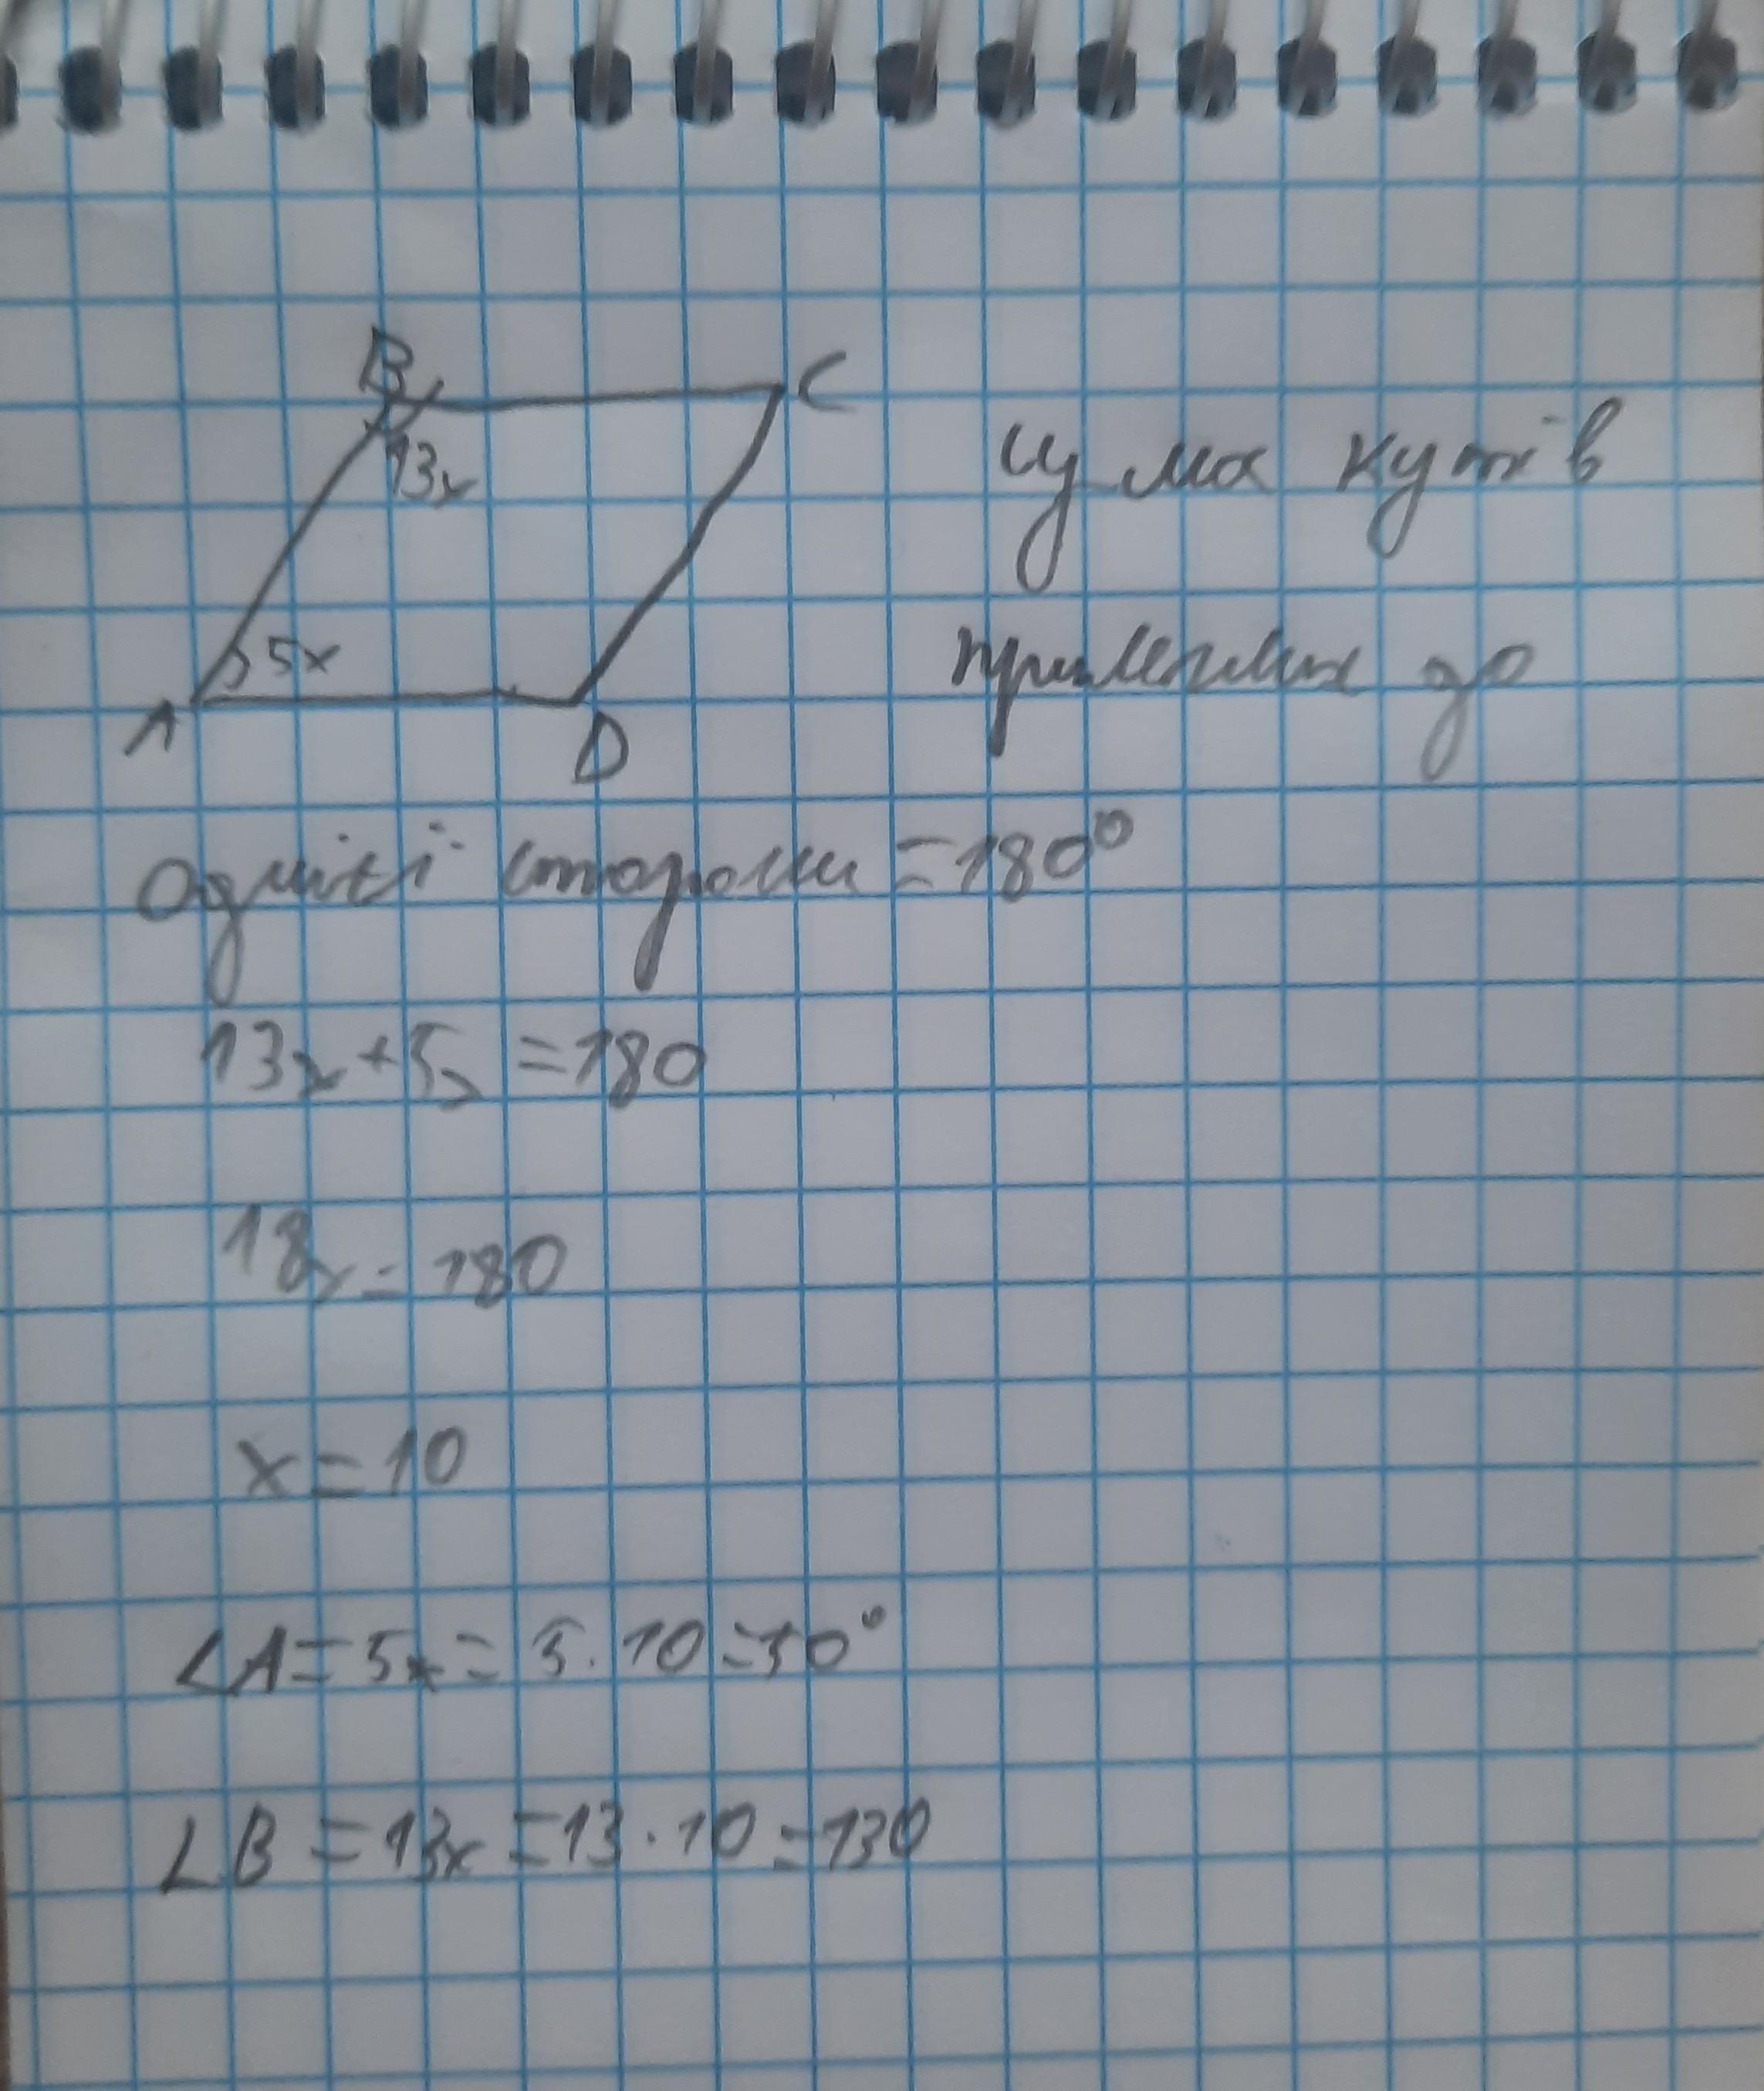 B
C
13x
5x
A
D
сума кутів
прилеглих до
однієї сторони = 180°
13x + 5x = 180
18x = 180
x = 10
∠A = 5x = 5 · 10 = 50°
∠B = 13x = 13 · 10 = 130